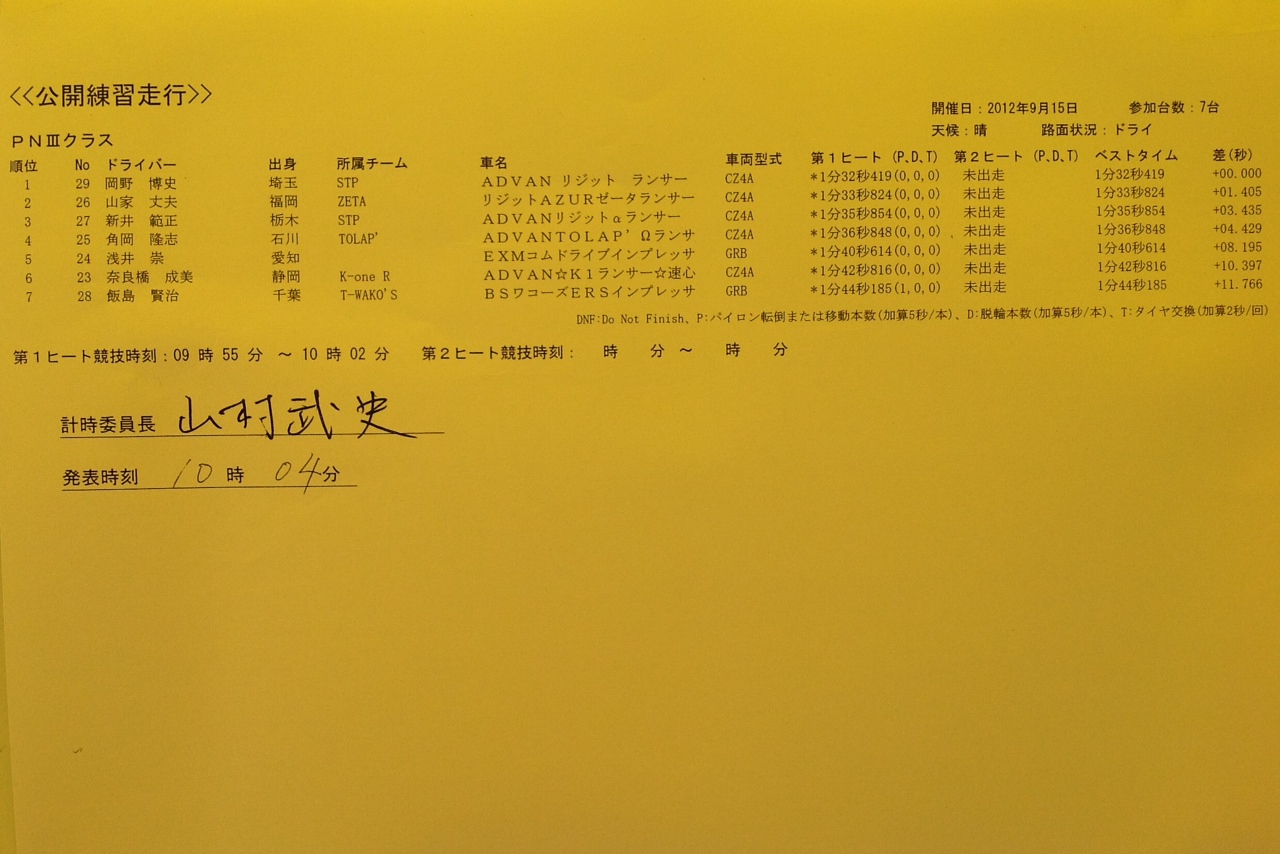 <<公開練習走行>>
開催日：2012年9月15日 参加台数：7台
ＰＮⅢクラス 天候：晴 路面状況：ドライ
順位 No ドライバー 出身 所属チーム 車名 車両型式 第１ヒート (P、D、T) 第２ヒート (P、D、T) ベストタイム 差(秒)
1 29 岡野 博史 埼玉 STP ＡＤＶＡＮ リジット ランサー CZ4A *1分32秒419(0,0,0) 未出走 1分32秒419 +00.000
2 26 山家 丈夫 福岡 ZETA リジットＡＺＵＲゼータランサー CZ4A *1分33秒824(0,0,0) 未出走 1分33秒824 +01.405
3 27 新井 範正 栃木 STP ＡＤＶＡＮリジットαランサー CZ4A *1分35秒854(0,0,0) 未出走 1分35秒854 +03.435
4 25 角岡 隆志 石川 TOLAP' ＡＤＶＡＮＴＯＬＡＰ’Ωランサ CZ4A *1分36秒848(0,0,0) 未出走 1分36秒848 +04.429
5 24 浅井 崇 愛知 ＥＸＭコムドライブインプレッサ GRB *1分40秒614(0,0,0) 未出走 1分40秒614 +08.195
6 23 奈良橋 成美 静岡 K-one R ＡＤＶＡＮ☆Ｋ１ランサー☆速心 CZ4A *1分42秒816(0,0,0) 未出走 1分42秒816 +10.397
7 28 飯島 賢治 千葉 T-WAKO'S ＢＳワコーズＥＲＳインプレッサ GRB *1分44秒185(1,0,0) 未出走 1分44秒185 +11.766
DNF:Do Not Finish、P:パイロン転倒または移動本数(加算5秒/本)、D:脱輪本数(加算5秒/本)、T:タイヤ交換(加算2秒/回)
第１ヒート競技時刻：09 時 55 分 ～ 10 時 02 分 第２ヒート競技時刻： 時 分 ～ 時 分
計時委員長 山村武史
発表時刻 10 時 04分